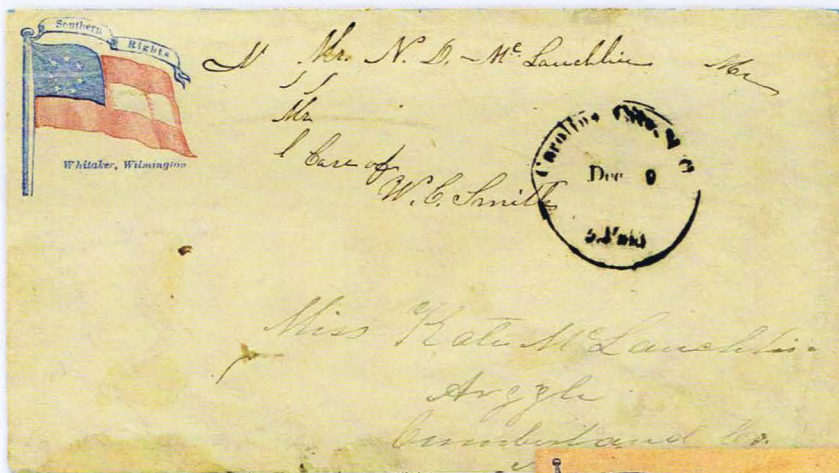 Southern Rights
Whitaker, Wilmington
M Mr. N. D. - McLauchlin Mr
Mr
Care of
W. C. Smith
Carolina City, N C
Dec 9
5 Paid
Miss Kate McLauchlin
Argyle
Cumberland Co.